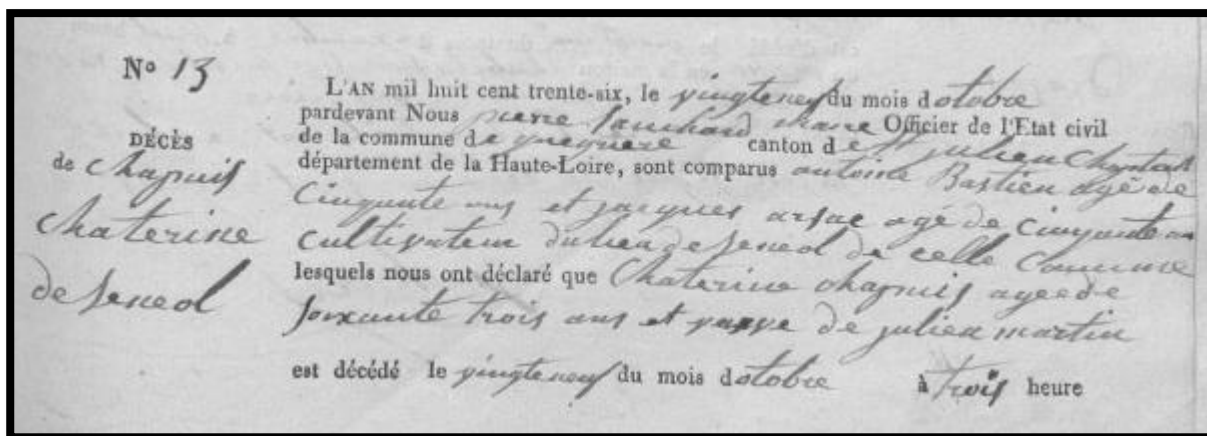 N° 13
DÉCÈS
de chapuis
chaterine
de seneol
L'AN mil huit cent trente-six, le vingteneuf du mois dotobre
pardevant Nous pierre maire Officier de l'Etat civil
de la commune de queyriere canton de St julien Chapteuil
département de la Haute-Loire, sont comparus antoine Bastien agé de
Cinquante ans et jacques arsac agé de cinquante an
cultivateur du lieu de seneol de celle Commune
lesquels nous ont déclaré que Chaterine chapuis ageede
soixante trois ans et veuve de julien martin
est décédé le vingteneuf du mois dotobre à trois heure